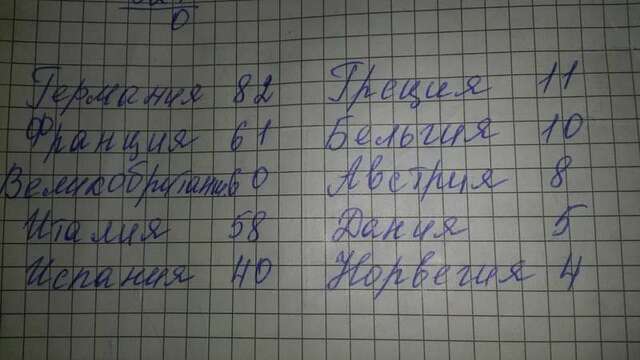 0
Германия 82 Греция 11
Франция 61 Бельгия 10
Великобритания 60 Австрия 8
Италия 58 Дания 5
Испания 40 Норвегия 4